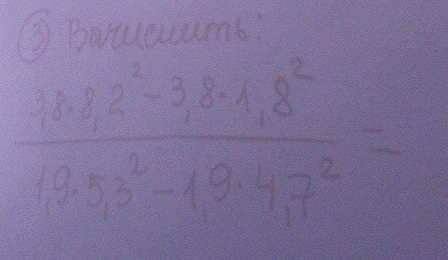 ③ Вычислить:
3,8·8,2² - 3,8·1,8²
1,9·5,3² - 1,9·4,7² =